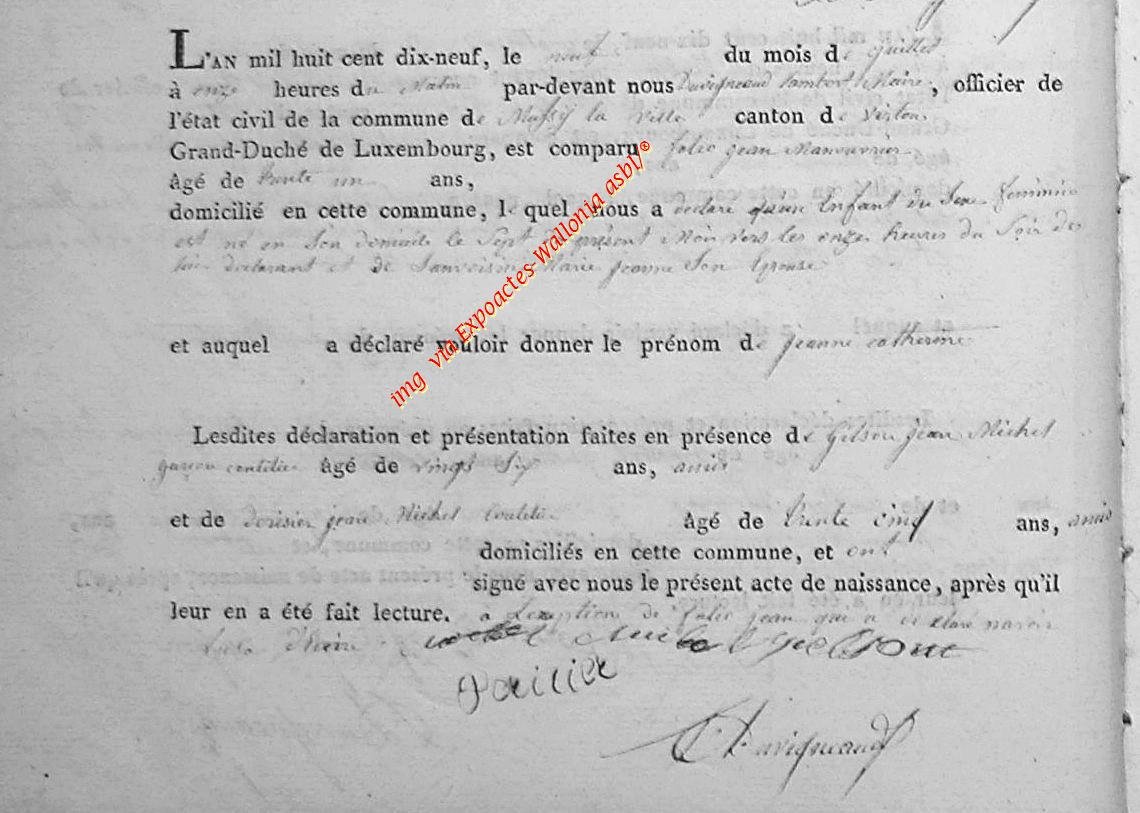 L'AN mil huit cent dix-neuf, le neuf du mois de juillet
à onze heures du Matin par-devant nous Duvigneaud Lambert Maire, officier de
l'état civil de la commune de Mussy la Ville canton de Virton
Grand-Duché de Luxembourg, est comparu Jolie Jean Manouvrier
âgé de trente un ans,
domicilié en cette commune, le quel nous a déclaré qu'un Enfant du Sexe feminin
est né en Son domicile le Sept du présent Mois vers les onze heures du Soir de
lui declarant et de Marie Jeanne Son Epouse
et auquel a déclaré vouloir donner le prénom de Jeanne catherine
Lesdites déclaration et présentation faites en présence de Gilson Jean Michel
garçon âgé de vingt Six ans, amis
et de jean Michel âgé de trente cinq ans, amis
domiciliés en cette commune, et ont
signé avec nous le présent acte de naissance, après qu'il
leur en a été fait lecture. a Lexeption de Jolie jean qui a declare navoir
img via Expoactes-Wallonia asbl/®